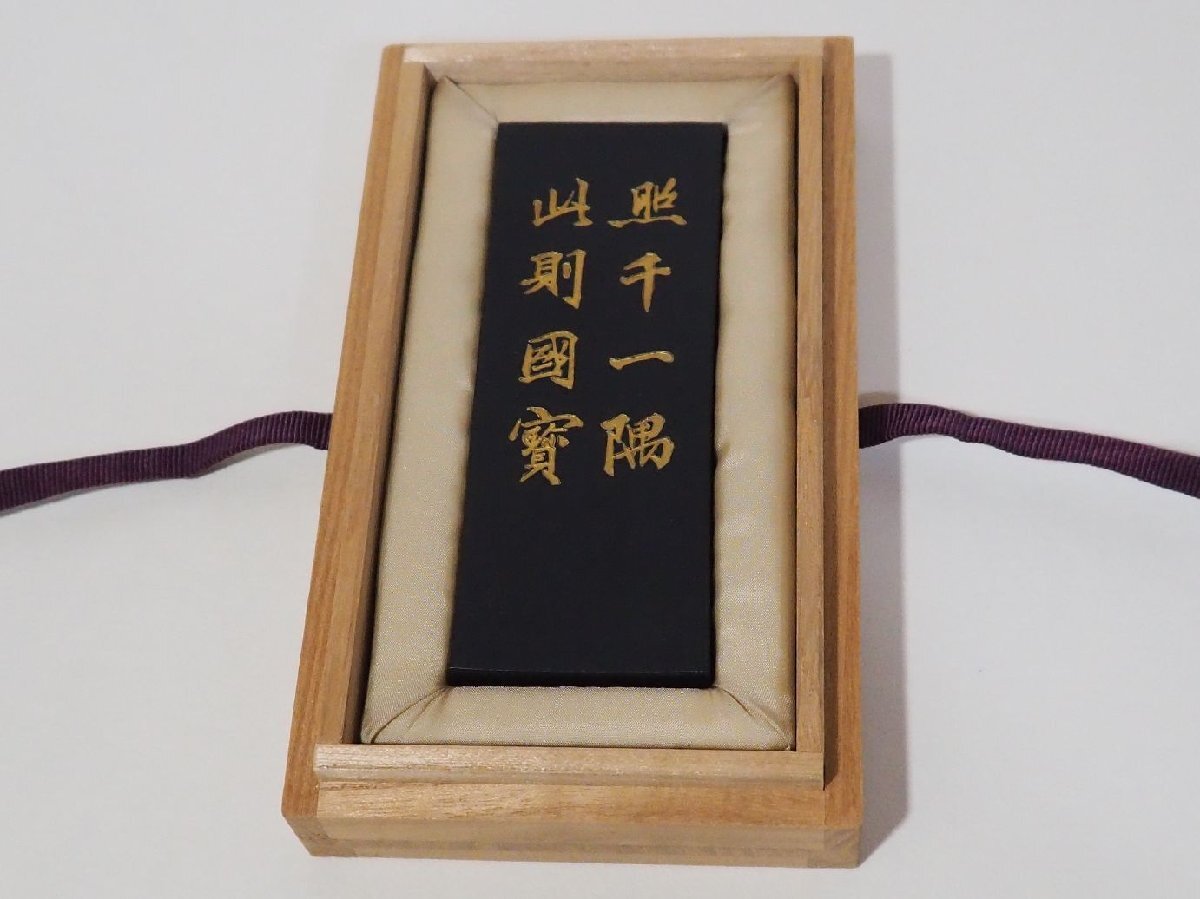 照千一隅
此則國寳